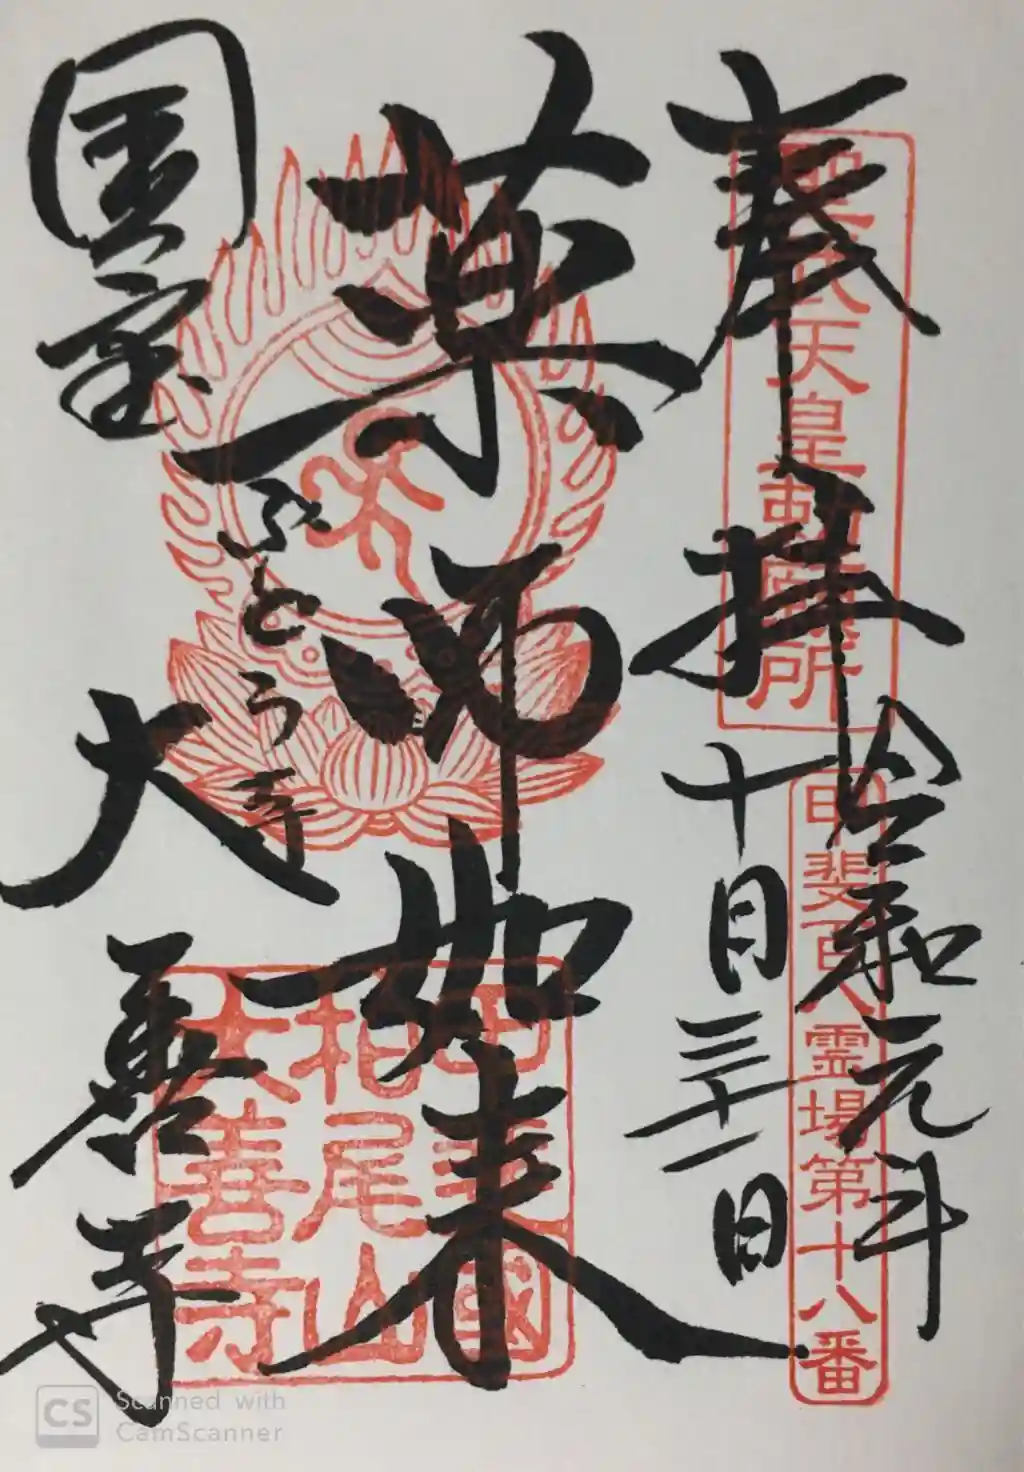 奉拝
令和元年
十月三十一日
薬師如来
国宝
ぶどう寺
大善寺
聖武天皇勅願所
甲斐百八霊場第十八番
甲斐國
柏尾山
大善寺
CS Scanned with
CamScanner